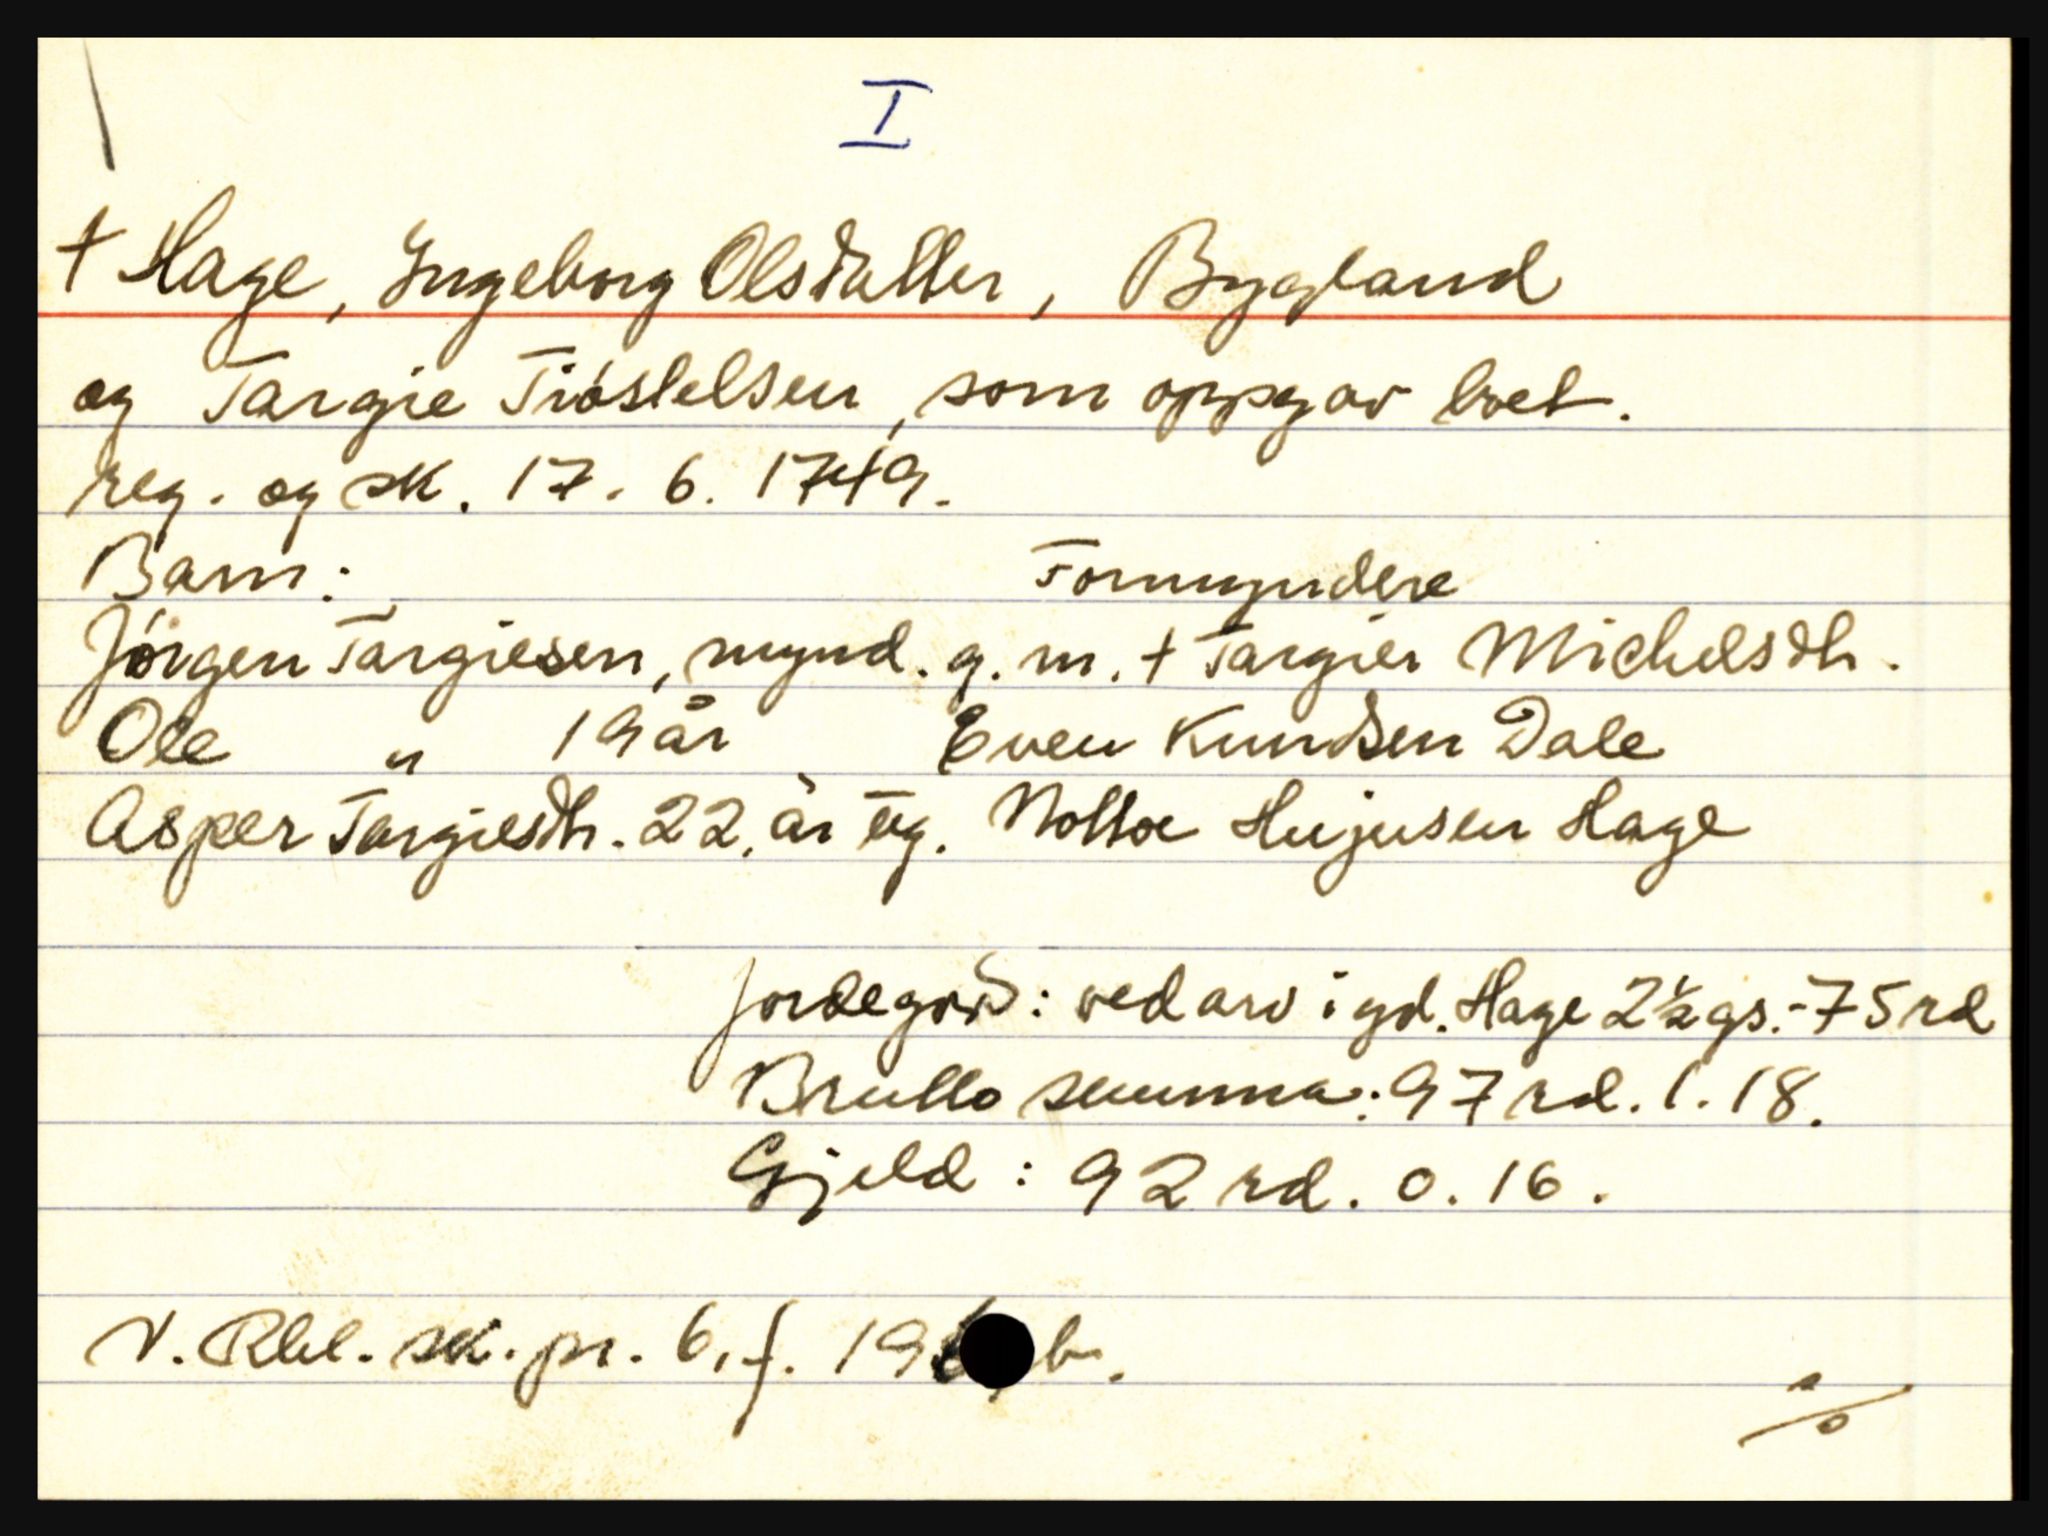 I
† Hage, Ingeborg Olsdatter, Bygland
og Targie Tiöstelsen, som oppgav boet.
reg. og sk. 17. 6. 1749.
Barn: Formyndere
Jörgen Targiesen, mynd. g. m. † Targier Michelsdtr.
Ole " 19 år Even Knudsen Dale
Asper Targiesdtr. 22. år ug. Nottoe Hujusen Hage
Jordegods: ved arv i gd. Hage 2½ gs. - 75 rd
Brutto summa: 97 rd. 1. 18.
Gjeld: 92 rd. 0. 16.
N. Rbl. sk. pr. 6, f. 19 b.